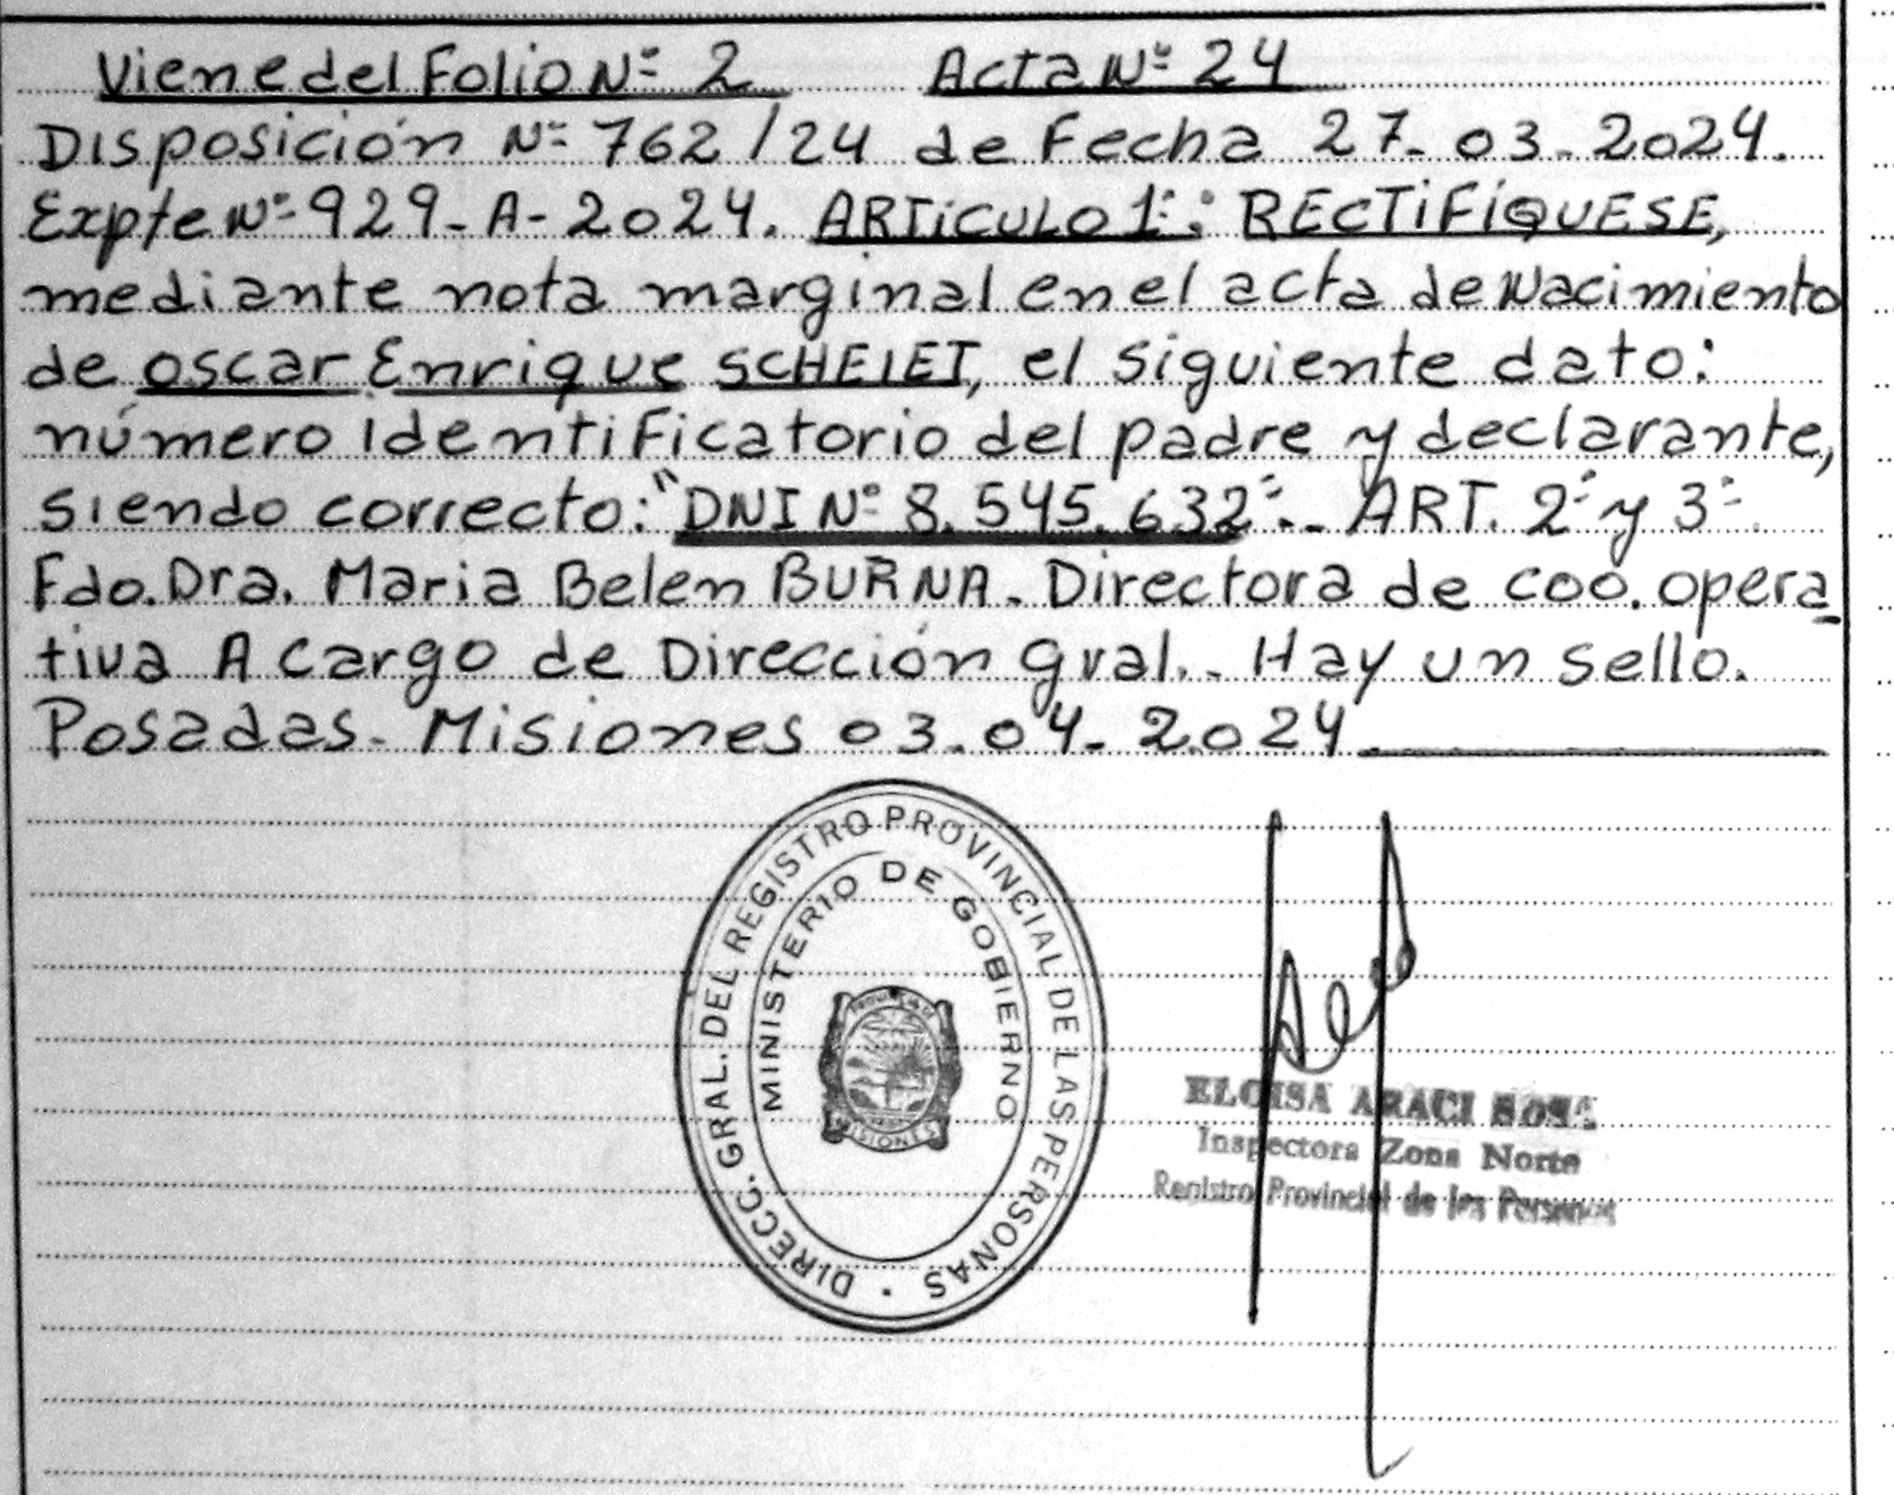 Viene del Folio Nº 2 Acta Nº 24
Disposición Nº 762/24 de Fecha 27-03-2024.
Expte Nº 929-A-2024. ARTICULO 1º: RECTIFÍQUESE,
mediante nota marginal en el acta de Nacimiento
de Oscar Enrique SCHEIET, el siguiente dato:
número identificatorio del padre y declarante,
siendo correcto: "DNI Nº 8.545.632".- ART. 2º y 3º.
Fdo. Dra. Maria Belen BURNA. Directora de Coo. opera-
tiva A cargo de Dirección Gral.- Hay un sello.
Posadas- Misiones 03-04-2024
DIRECC. GRAL. DEL REGISTRO PROVINCIAL DE LAS PERSONAS
MINISTERIO DE GOBIERNO
MISIONES
ELOISA ARACI SOSA
Inspectora Zona Norte
Registro Provincial de las Personas